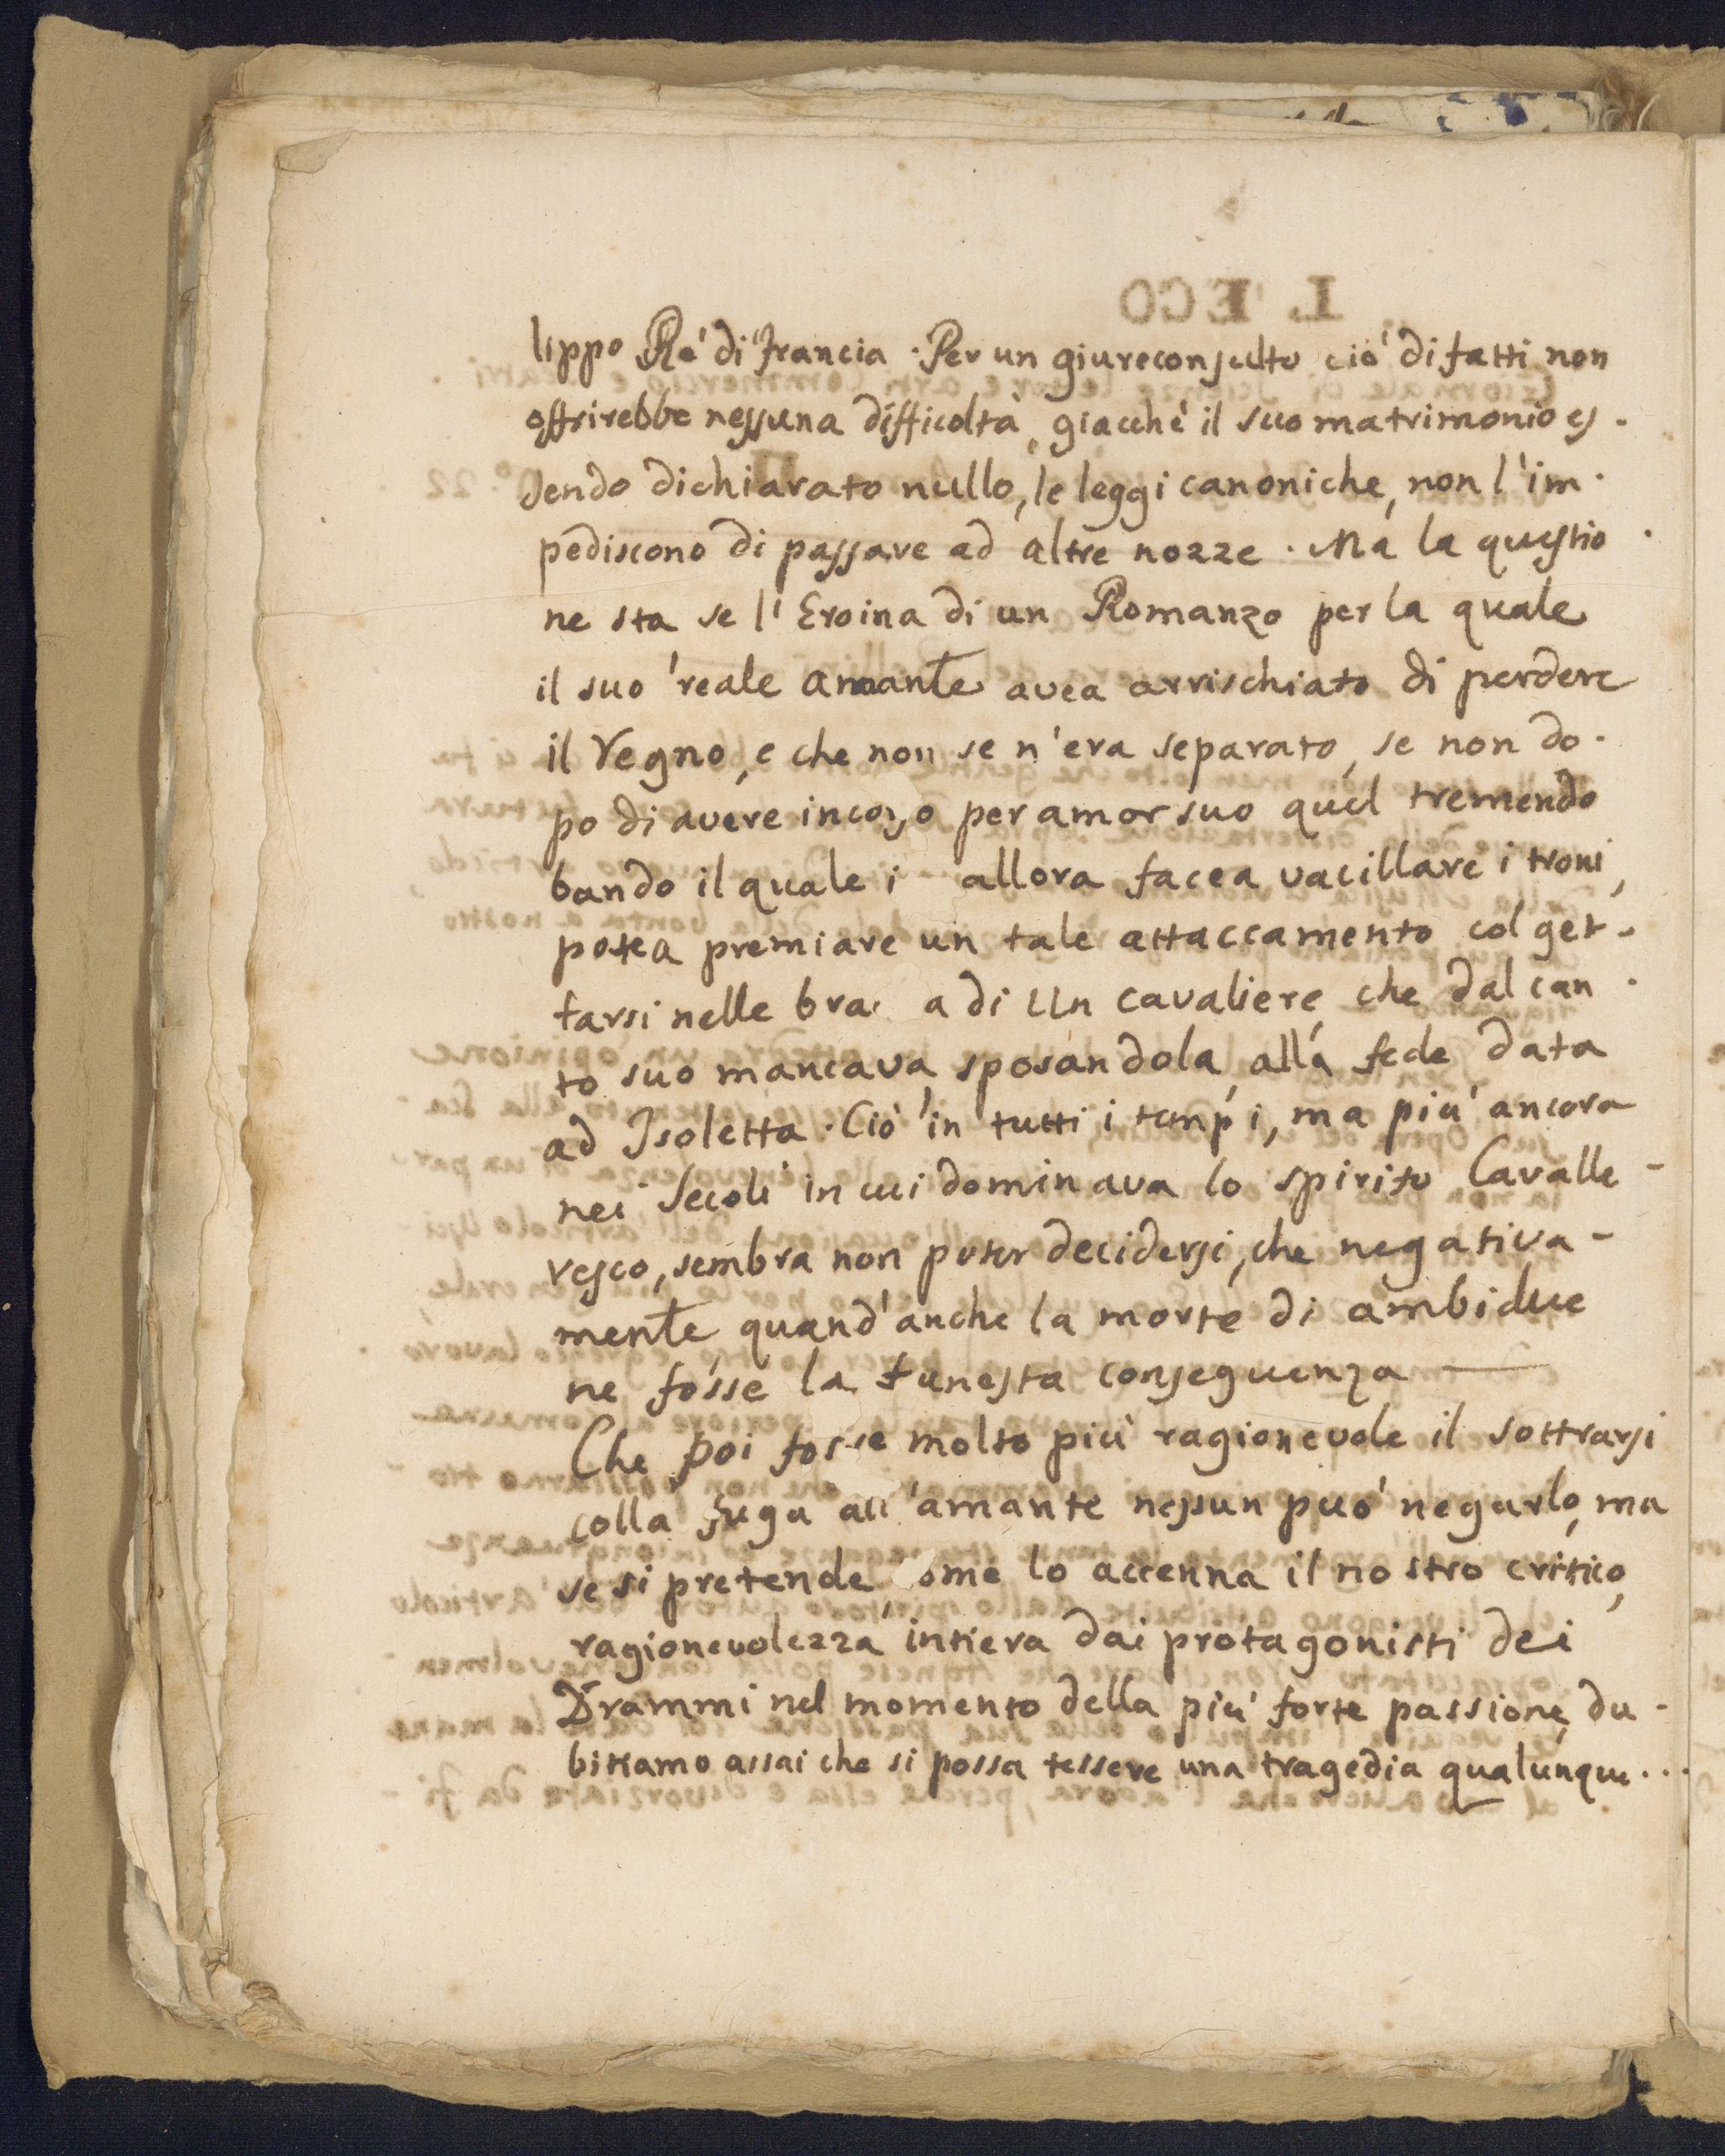 lippo Ré di Francia. Per un giureconsulto ciò difatti non
offrirebbe nessuna difficoltà, giacchè il suo matrimonio es-
sendo dichiarato nullo, le leggi canoniche, non l'im-
pediscono di passare ad altre nozze. Ma la questio
ne sta se l'Eroina di un Romanzo per la quale
il suo reale amante avea arrischiato di perdere
il regno, e che non se n'era separato, se non do-
po di avere incorso per amor suo quel tremendo
bando il quale i allora facea vacillare i troni,
potea premiare un tale attaccamento col get-
tarsi nelle bra a di un cavaliere, che dal can
to suo mancava, sposandola, alla fede data
ad Isoletta. Ciò in tutti i tempi, ma più ancora
nei secoli in cui dominava lo spirito Cavalle-
resco, sembra non poter decidersi, che negativa-
mente, quand'anche la morte di ambidue
ne fosse la funesta conseguenza —
Che poi fosse molto più ragionevole il sottrarsi
colla fuga all'amante nessun può negarlo, ma
se si pretende, come lo accenna il nostro critico,
ragionevolezza intiera dai protagonisti dei
Drammi nel momento della più forte passione, du-
bitiamo assai che si possa tessere una tragedia qualunque...
L'ECO